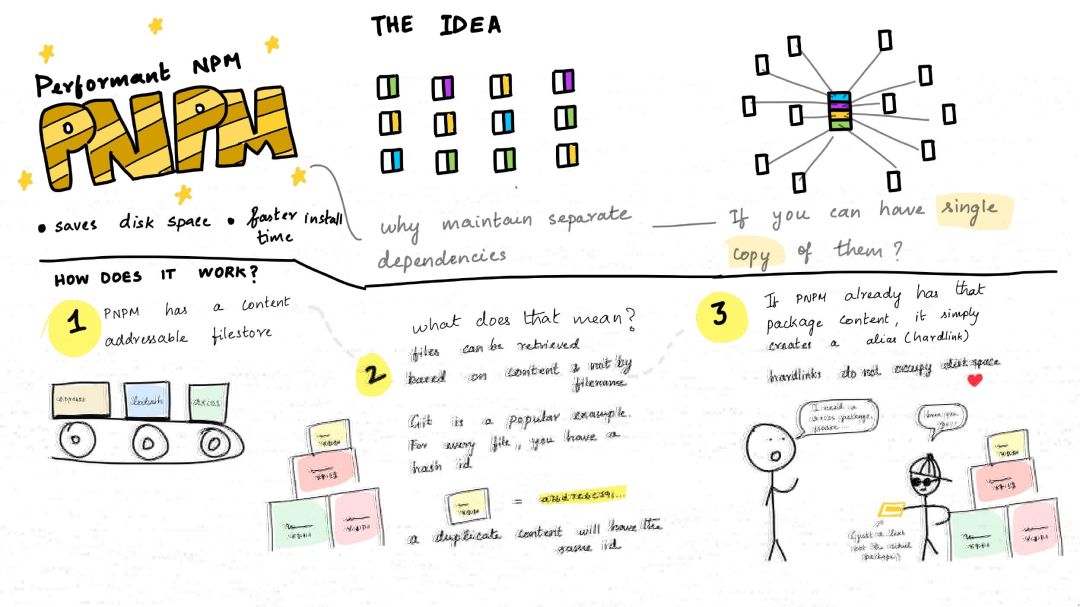 Performant NPM
PNPM
• saves disk space • faster install
time
THE IDEA
why maintain separate
dependencies
If you can have single
copy of them?
HOW DOES IT WORK?
1
PNPM has a content
addressable filestore
express
lodash
axios
2
what does that mean?
files can be retrieved
based on content & not by
filename
Git is a popular example.
For every file, you have a
hash id
=
a duplicate content will have the
same id
3
If PNPM already has that
package content, it simply
creates a alias (hardlink)
hardlinks do not occupy disk space
I need a
axios package,
please
Here you
go!!
(just a link
not the actual
package)